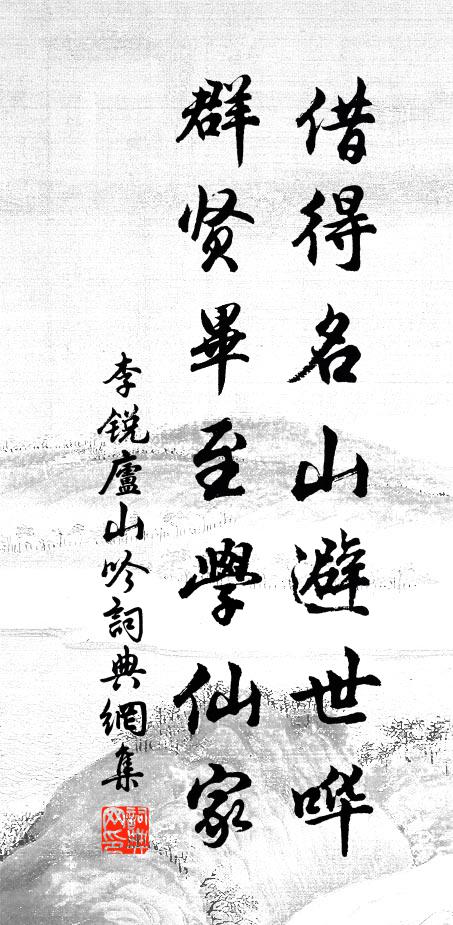 借得名山避世哗
群贤畢至學仙家
李锐廬山吟詞典網集